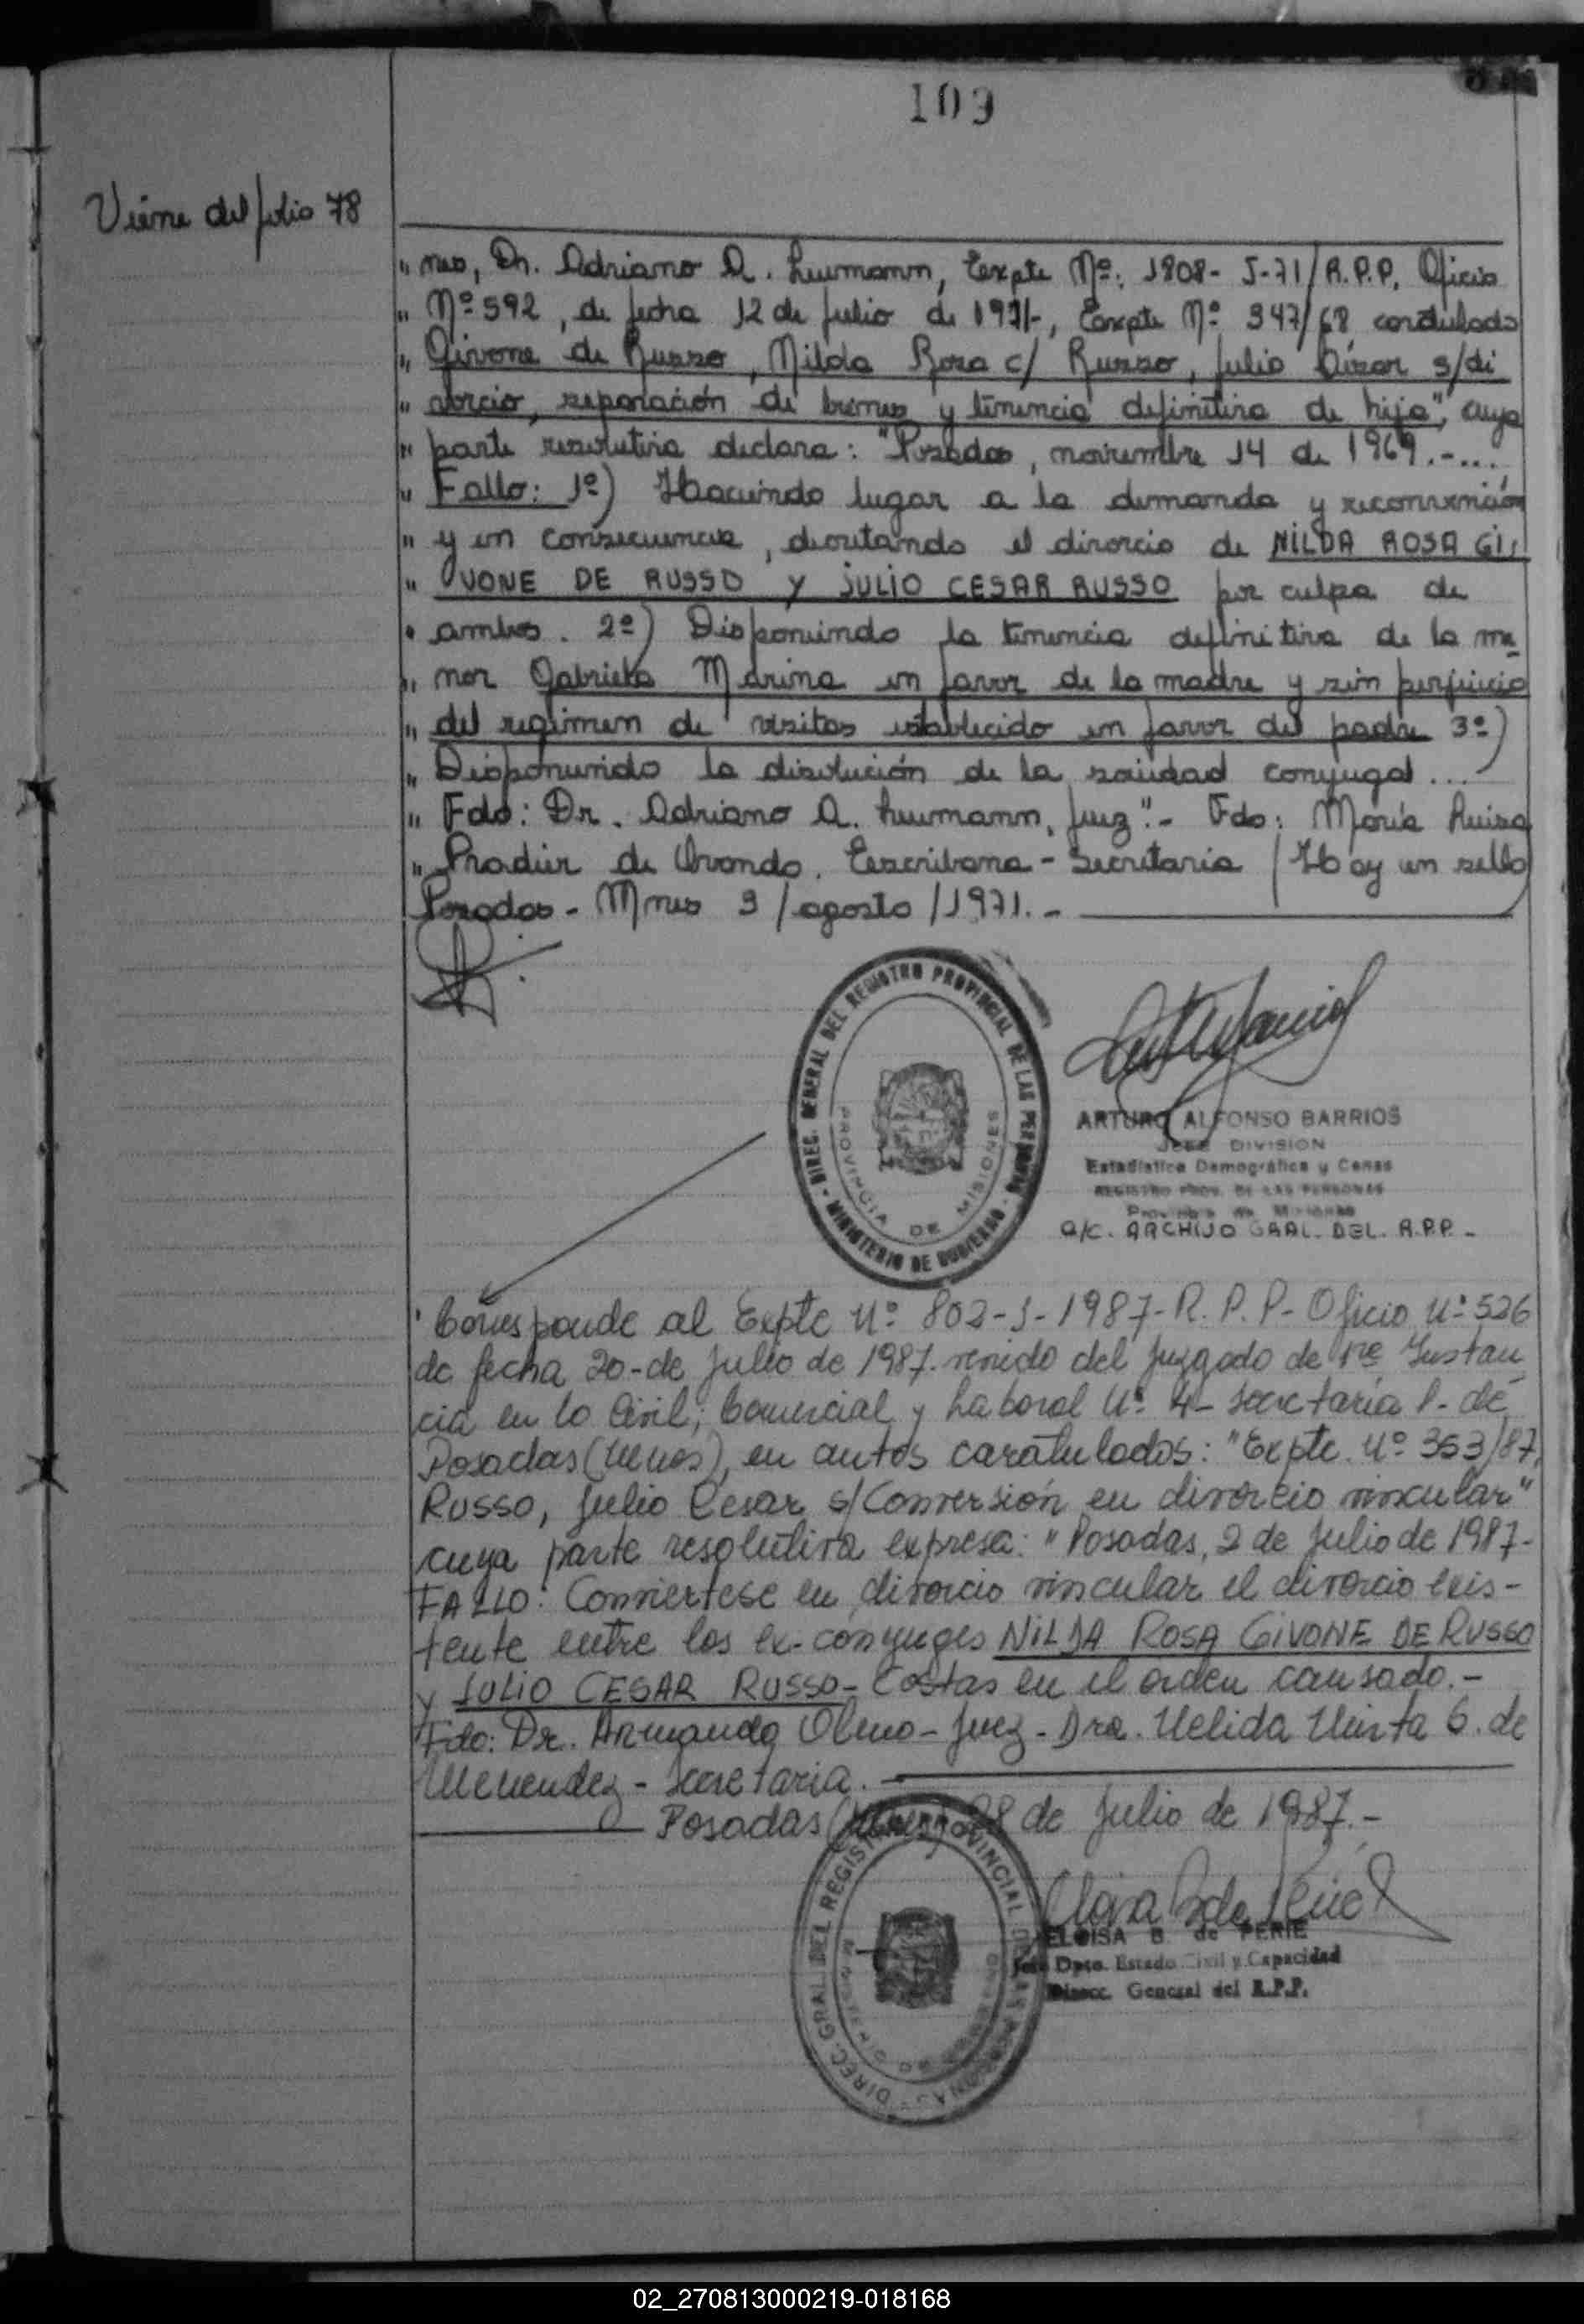 109
Viene del folio 78
" nes, Dr. Adriano A. Leumann, Expte Nº: 1808- J-71/R.P.P. Oficio
" Nº 592, de fecha 12 de julio de 1971-, Expte Nº 347/68 caratulado
" Givone de Russo, Nilda Rosa c/ Russo, Julio César s/di
" vorcio, separación de bienes y tenencia definitiva de hija", cuya
" parte resolutiva declara: "Posadas, noviembre 14 de 1969.-...
" Fallo: 1º) Haciendo lugar a la demanda y reconvención
" y en consecuencia, decretando el divorcio de NILDA ROSA GI
" VONE DE RUSSO Y JULIO CESAR RUSSO por culpa de
" ambos. 2º) Disponiendo la tenencia definitiva de la me
" nor Gabriela Marina en favor de la madre y sin perjuicio
" del regimen de visitas establecido en favor del padre 3º)
" Disponiendo la disolución de la sociedad conyugal ...
" Fdo: Dr. Adriano A. Leumann, Juez".- Fdo: María Luisa
" Pradier de Ovando. Escribana - Secretaria / Hay un sello
Posadas - Mnes 3/agosto/1971.-
DIREC. GENERAL DEL REGISTRO PROVINCIAL DE LAS PERSONAS - MINISTERIO DE GOBIERNO -
PROVINCIA DE MISIONES
ARTURO ALFONSO BARRIOS
JEFE DIVISION
Estadística Demográfica y Censo
REGISTRO PROV. DE LAS PERSONAS
Provincia de Misiones
a/c. ARCHIVO GRAL. DEL. R.P.P.-
" Corresponde al Expte Nº 802-J-1987-R.P.P- Oficio Nº 526
de fecha 20-de Julio de 1987. venido del Juzgado de 1ra Instan
cia en lo Civil; Comercial y Laboral Nº 4- Secretaría 1- de
Posadas (Mnes), en autos caratulados: "Expte. Nº 353/87,
RUSSO, Julio Cesar s/Conversión en divorcio vincular"
cuya parte resolutiva expresa: "Posadas, 2 de Julio de 1987-
FALLO: Conviertese en divorcio vincular el divorcio exis-
tente entre los ex-conyuges NILDA ROSA GIVONE DE RUSSO
y JULIO CESAR RUSSO- Costas en el orden causado.-
Fdo: Dr. Armando Olmo- Juez- Dra. Nelida Mirta G. de
Menendez - Secretaria.-
Posadas (Mnes) 28 de Julio de 1987.-
DIREC. GRAL. DEL REGISTRO PROVINCIAL DE LAS PERSONAS
ELOISA B. de PERIE
Jefe Dpto. Estado Civil y Capacidad
Direcc. General del R.P.P.
02_270813000219-018168